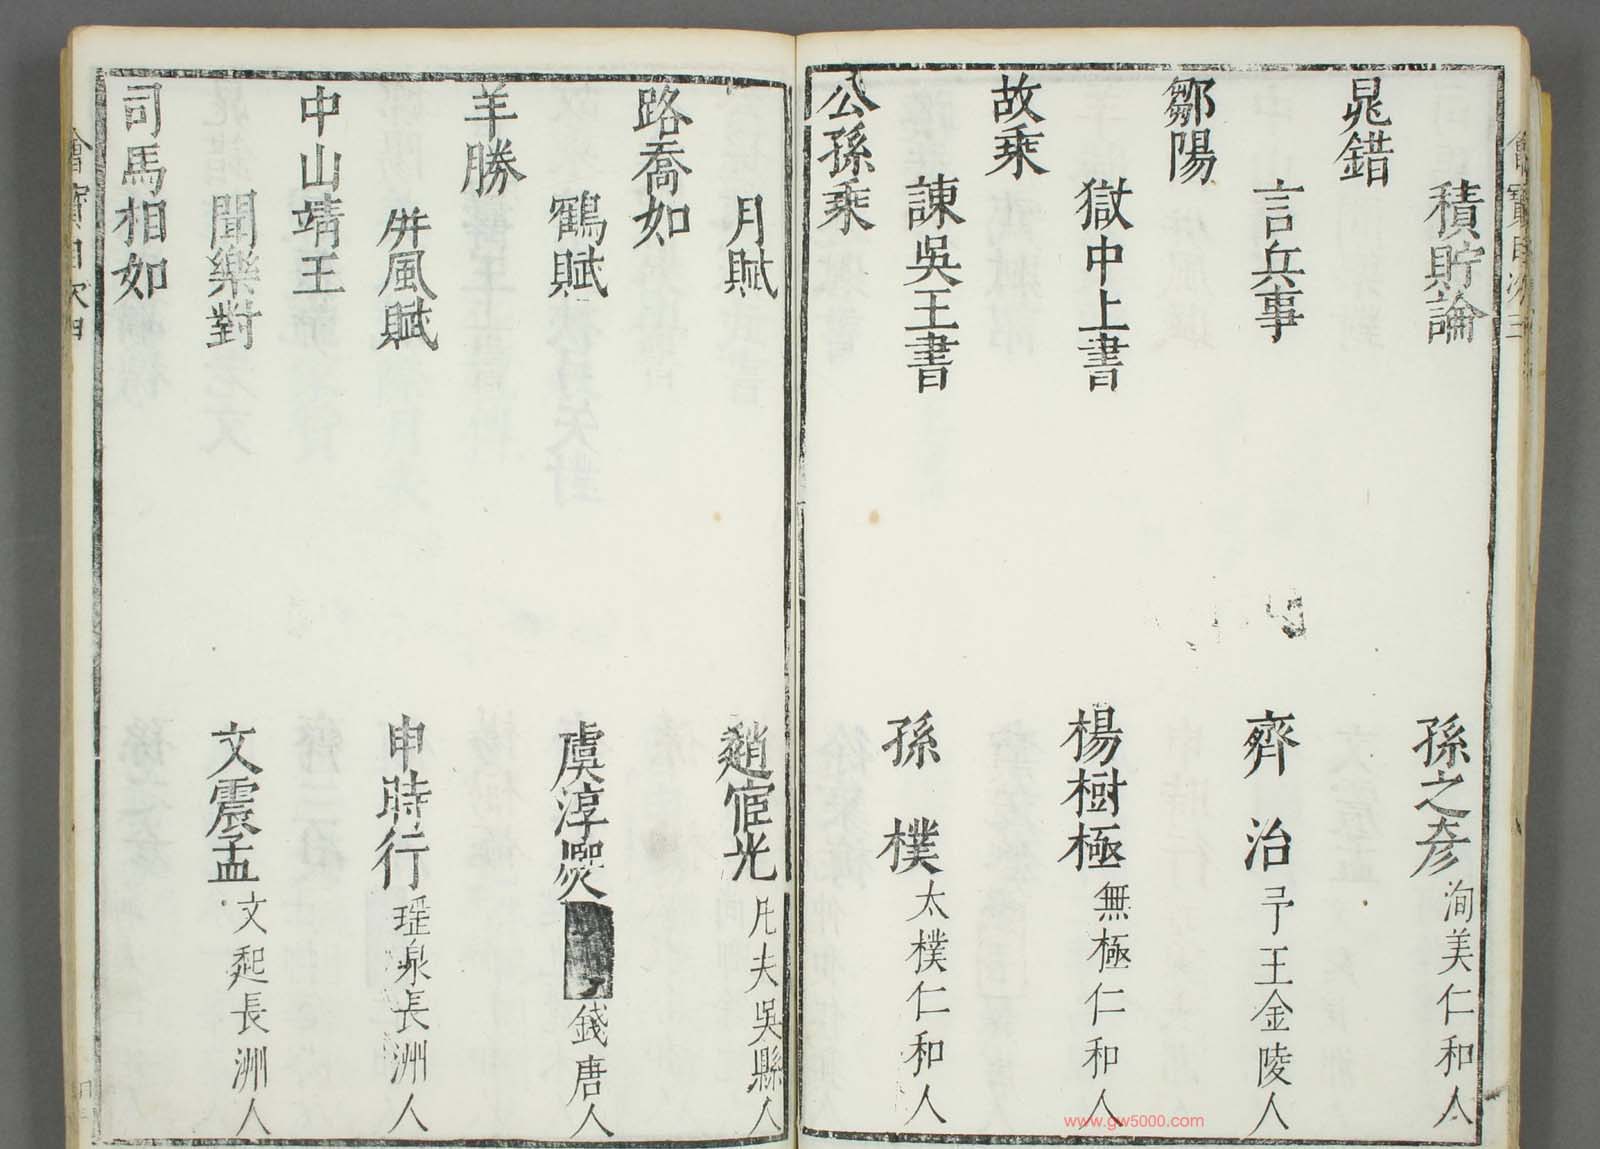 積貯論 孫之彦 洵美仁和人
晁錯
言兵事 齊治 予王金陵人
鄒陽
獄中上書 楊樹極 無極仁和人
故乘
諫吳王書 孫樸 太樸仁和人
公孫乘
月賦 趙宧光 凡夫吳縣人
路喬如
鶴賦 虞淳熈 錢唐人
羊勝
屏風賦 申時行 瑶泉長洲人
中山靖王
聞樂對 文震孟 文起長洲人
司馬相如
www.gw5000.com